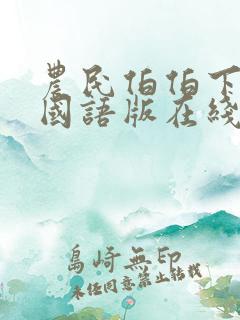 農民伯伯下
國語版在綫
島崎無印
未经同意禁止转载